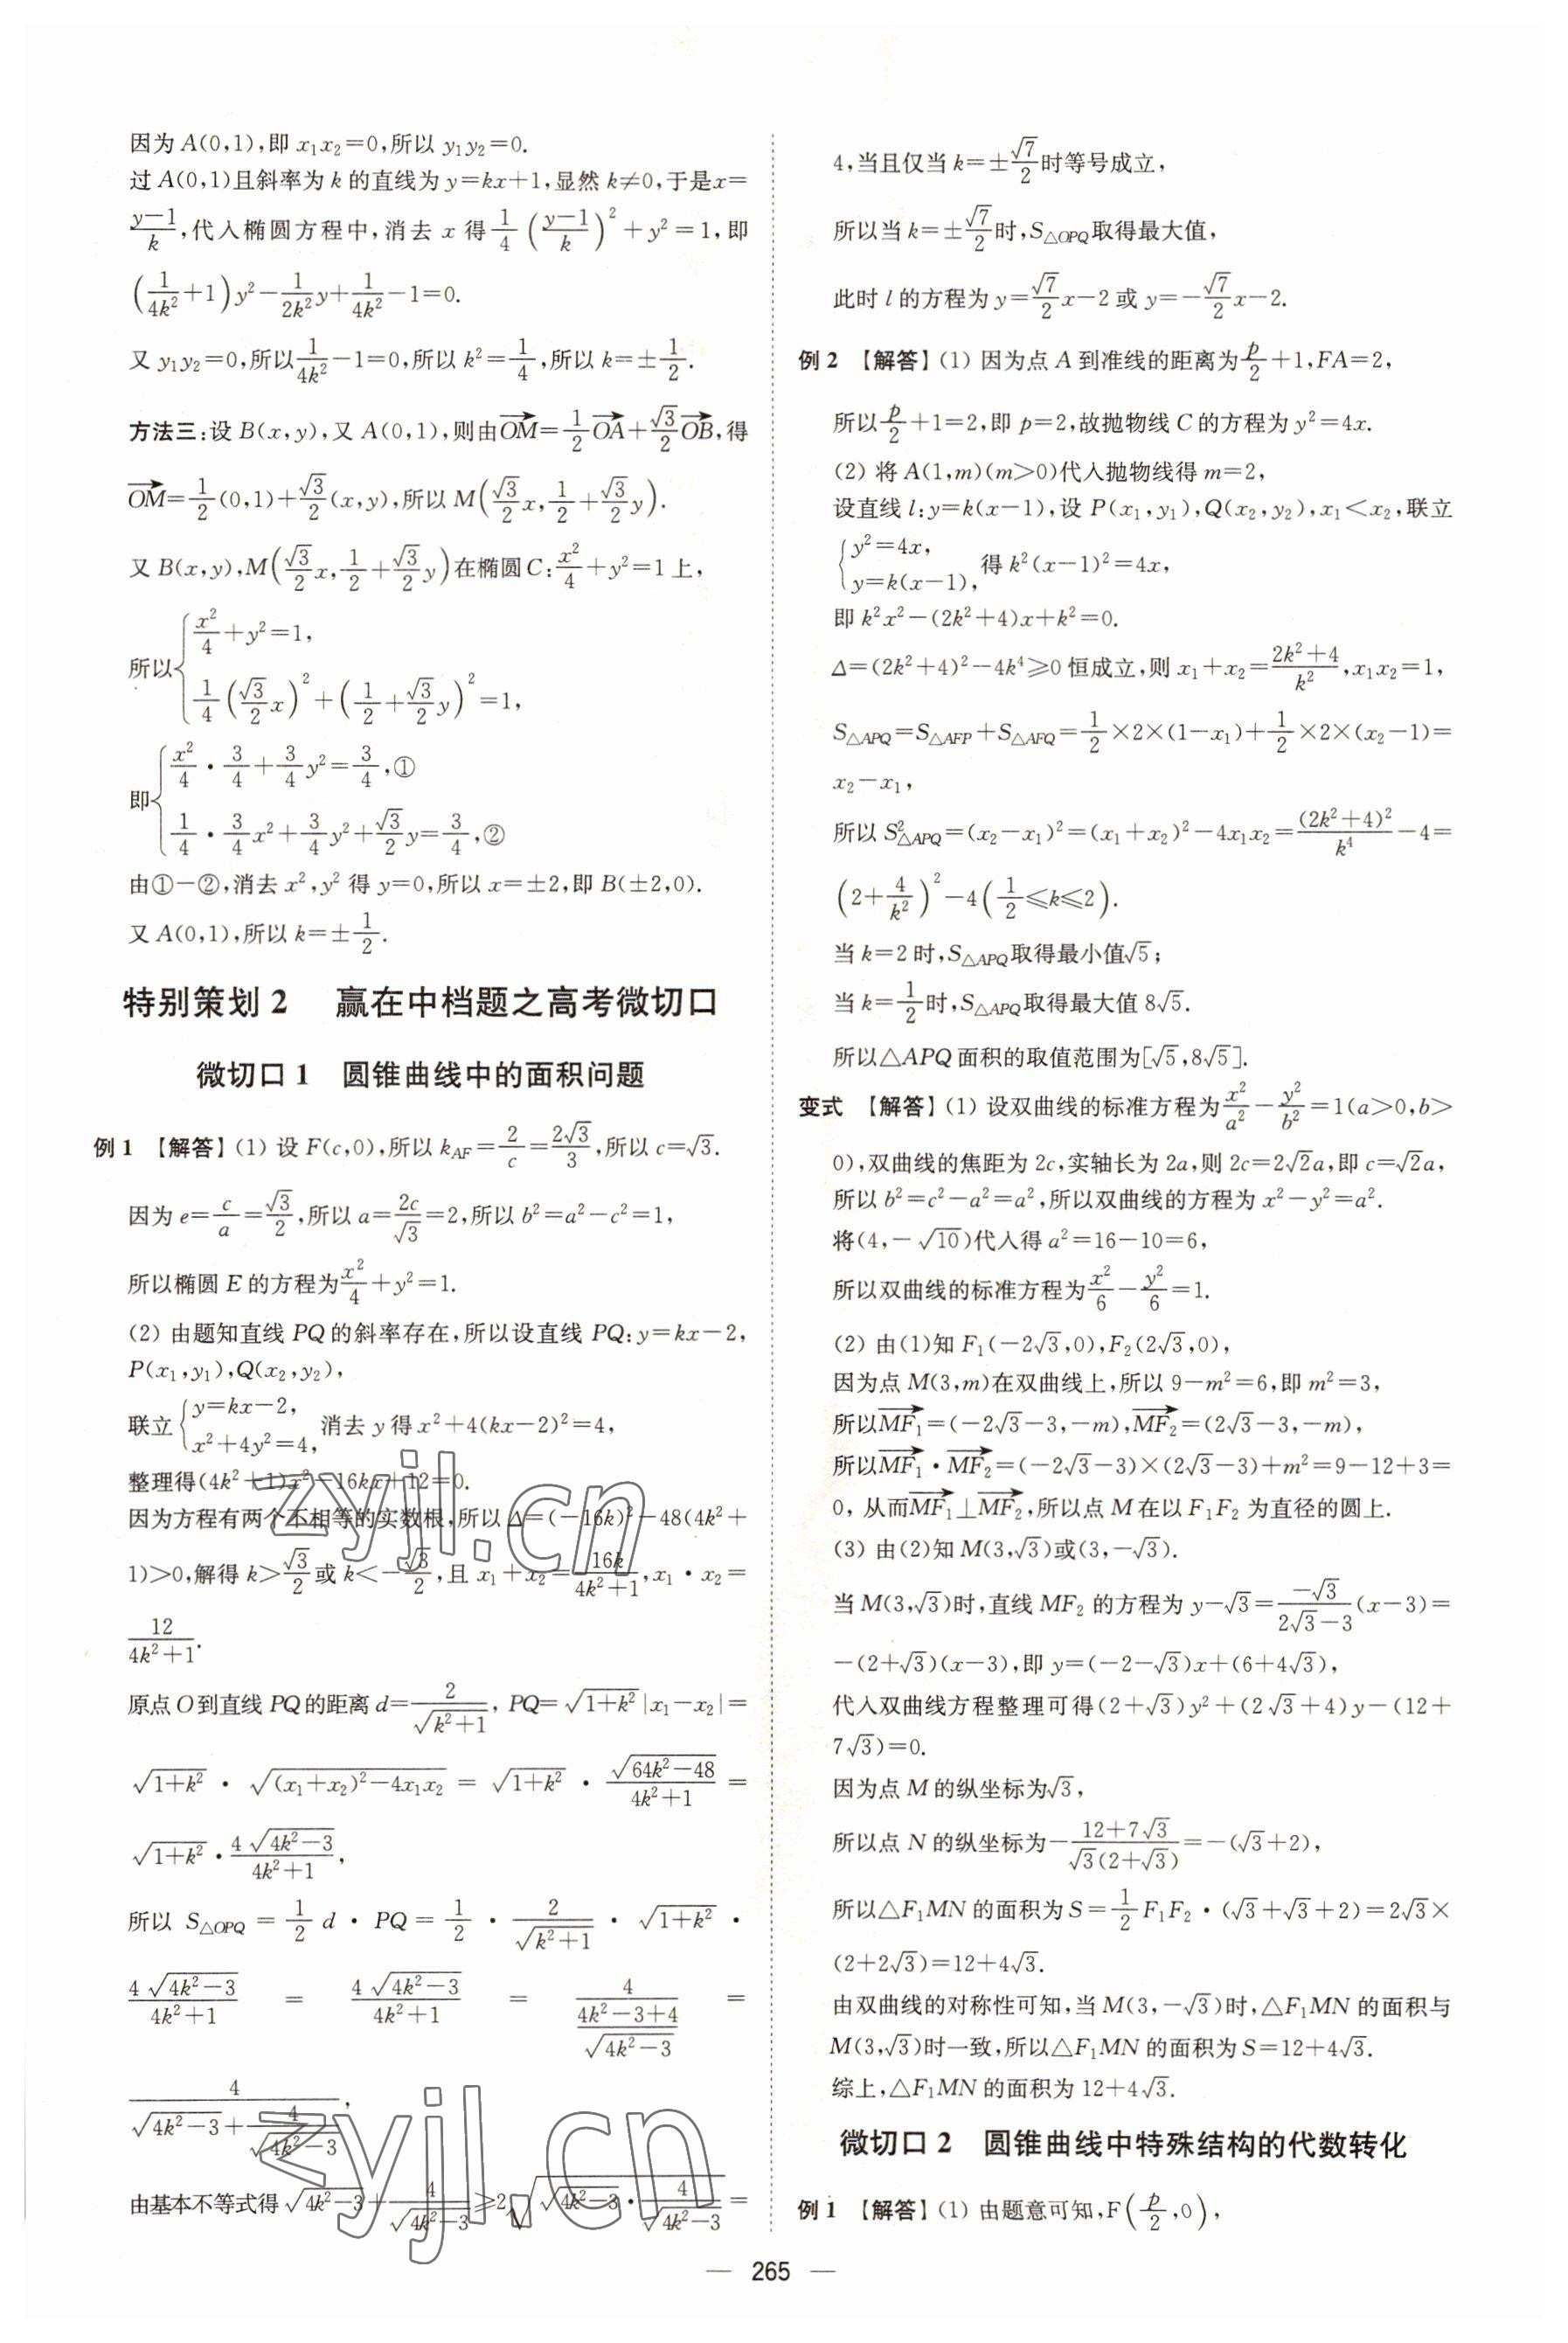 因为 A(0,1),即 x₁x₂=0,所以 y₁y₂=0.
过 A(0,1)且斜率为 k 的直线为 y=kx+1,显然 k≠0,于是x=
\frac{y-1}{k},代入椭圆方程中,消去 x 得\frac{1}{4}(\frac{y-1}{k})²+y²=1,即
(\frac{1}{4k²}+1)y²-\frac{1}{2k²}y+\frac{1}{4k²}-1=0.
又 y₁y₂=0,所以\frac{1}{4k²}-1=0,所以 k²=\frac{1}{4},所以 k=±\frac{1}{2}.
方法三:设 B(x,y),又 A(0,1),则由\overrightarrow{OM}=\frac{1}{2}\overrightarrow{OA}+\frac{√3}{2}\overrightarrow{OB},得
\overrightarrow{OM}=\frac{1}{2}(0,1)+\frac{√3}{2}(x,y),所以 M(\frac{√3}{2}x,\frac{1}{2}+\frac{√3}{2}y).
又 B(x,y),M(\frac{√3}{2}x,\frac{1}{2}+\frac{√3}{2}y)在椭圆 C:\frac{x²}{4}+y²=1 上,
所以{\frac{x²}{4}+y²=1,
\frac{1}{4}(\frac{√3}{2}x)²+(\frac{1}{2}+\frac{√3}{2}y)²=1,
即{\frac{x²}{4}·\frac{3}{4}+\frac{3}{4}y²=\frac{3}{4},①
\frac{1}{4}·\frac{3}{4}x²+\frac{3}{4}y²+\frac{√3}{2}y=\frac{3}{4},②
由①-②,消去 x²,y² 得 y=0,所以 x=±2,即 B(±2,0).
又 A(0,1),所以 k=±\frac{1}{2}.
特别策划 2 赢在中档题之高考微切口
微切口 1 圆锥曲线中的面积问题
例 1 【解答】(1) 设 F(c,0),所以 k_{AF}=\frac{2}{c}=\frac{2√3}{3},所以 c=√3.
因为 e=\frac{c}{a}=\frac{√3}{2},所以 a=\frac{2c}{√3}=2,所以 b²=a²-c²=1,
所以椭圆 E 的方程为\frac{x²}{4}+y²=1.
(2) 由题知直线 PQ 的斜率存在,所以设直线 PQ:y=kx-2,
P(x₁,y₁),Q(x₂,y₂),
联立{y=kx-2,
x²+4y²=4, 消去 y 得 x²+4(kx-2)²=4,
整理得(4k²+1)x²-16kx+12=0.
因为方程有两个不相等的实数根,所以 Δ=(-16k)²-48(4k²+
1)>0,解得 k>\frac{√3}{2}或 k<-\frac{√3}{2},且 x₁+x₂=\frac{16k}{4k²+1},x₁·x₂=
\frac{12}{4k²+1}.
原点 O 到直线 PQ 的距离 d=\frac{2}{\sqrt{k²+1}}, PQ=\sqrt{1+k²}|x₁-x₂|=
\sqrt{1+k²}·\sqrt{(x₁+x₂)²-4x₁x₂}=\sqrt{1+k²}·\frac{\sqrt{64k²-48}}{4k²+1}=
\sqrt{1+k²}·\frac{4\sqrt{4k²-3}}{4k²+1},
所以 S_{△OPQ}=\frac{1}{2}d·PQ=\frac{1}{2}·\frac{2}{\sqrt{k²+1}}·\sqrt{1+k²}·
\frac{4\sqrt{4k²-3}}{4k²+1}=\frac{4\sqrt{4k²-3}}{4k²+1}=\frac{4}{\frac{4k²-3+4}{\sqrt{4k²-3}}}=
\frac{4}{\sqrt{4k²-3}+\frac{4}{\sqrt{4k²-3}}},
由基本不等式得\sqrt{4k²-3}+\frac{4}{\sqrt{4k²-3}}≥2\sqrt{\sqrt{4k²-3}·\frac{4}{\sqrt{4k²-3}}}=
4,当且仅当 k=±\frac{√7}{2}时等号成立,
所以当 k=±\frac{√7}{2}时,S_{△OPQ}取得最大值,
此时 l 的方程为 y=\frac{√7}{2}x-2 或 y=-\frac{√7}{2}x-2.
例 2 【解答】(1) 因为点 A 到准线的距离为\frac{p}{2}+1,FA=2,
所以\frac{p}{2}+1=2,即 p=2,故抛物线 C 的方程为 y²=4x.
(2) 将 A(1,m)(m>0)代入抛物线得 m=2,
设直线 l:y=k(x-1),设 P(x₁,y₁),Q(x₂,y₂),x₁<x₂,联立
{y²=4x,
y=k(x-1), 得 k²(x-1)²=4x,
即 k²x²-(2k²+4)x+k²=0.
Δ=(2k²+4)²-4k⁴≥0 恒成立,则 x₁+x₂=\frac{2k²+4}{k²},x₁x₂=1,
S_{△APQ}=S_{△AFP}+S_{△AFQ}=\frac{1}{2}×2×(1-x₁)+\frac{1}{2}×2×(x₂-1)=
x₂-x₁,
所以 S²_{△APQ}=(x₂-x₁)²=(x₁+x₂)²-4x₁x₂=\frac{(2k²+4)²}{k⁴}-4=
(2+\frac{4}{k²})²-4(\frac{1}{2}≤k≤2).
当 k=2 时,S_{△APQ}取得最小值√5;
当 k=\frac{1}{2}时,S_{△APQ}取得最大值 8√5.
所以△APQ 面积的取值范围为[√5,8√5].
变式 【解答】(1) 设双曲线的标准方程为\frac{x²}{a²}-\frac{y²}{b²}=1(a>0,b>
0),双曲线的焦距为 2c,实轴长为 2a,则 2c=2√2a,即 c=√2a,
所以 b²=c²-a²=a²,所以双曲线的方程为 x²-y²=a².
将(4,-√10)代入得 a²=16-10=6,
所以双曲线的标准方程为\frac{x²}{6}-\frac{y²}{6}=1.
(2) 由(1)知 F₁(-2√3,0),F₂(2√3,0),
因为点 M(3,m)在双曲线上,所以 9-m²=6,即 m²=3,
所以\overrightarrow{MF₁}=(-2√3-3,-m),\overrightarrow{MF₂}=(2√3-3,-m),
所以\overrightarrow{MF₁}·\overrightarrow{MF₂}=(-2√3-3)×(2√3-3)+m²=9-12+3=
0, 从而\overrightarrow{MF₁}⊥\overrightarrow{MF₂},所以点 M 在以 F₁F₂ 为直径的圆上.
(3) 由(2)知 M(3,√3)或(3,-√3).
当 M(3,√3)时,直线 MF₂ 的方程为 y-√3=\frac{-√3}{2√3-3}(x-3)=
-(2+√3)(x-3),即 y=(-2-√3)x+(6+4√3),
代入双曲线方程整理可得(2+√3)y²+(2√3+4)y-(12+
7√3)=0.
因为点 M 的纵坐标为√3,
所以点 N 的纵坐标为-\frac{12+7√3}{√3(2+√3)}=-(√3+2),
所以△F₁MN 的面积为 S=\frac{1}{2}F₁F₂·(√3+√3+2)=2√3×
(2+2√3)=12+4√3.
由双曲线的对称性可知,当 M(3,-√3)时,△F₁MN 的面积与
M(3,√3)时一致,所以△F₁MN 的面积为 S=12+4√3.
综上,△F₁MN 的面积为 12+4√3.
微切口 2 圆锥曲线中特殊结构的代数转化
例 1 【解答】(1) 由题意可知,F(\frac{p}{2},0),
— 265 —
zyjl.cn
zyjl.cn